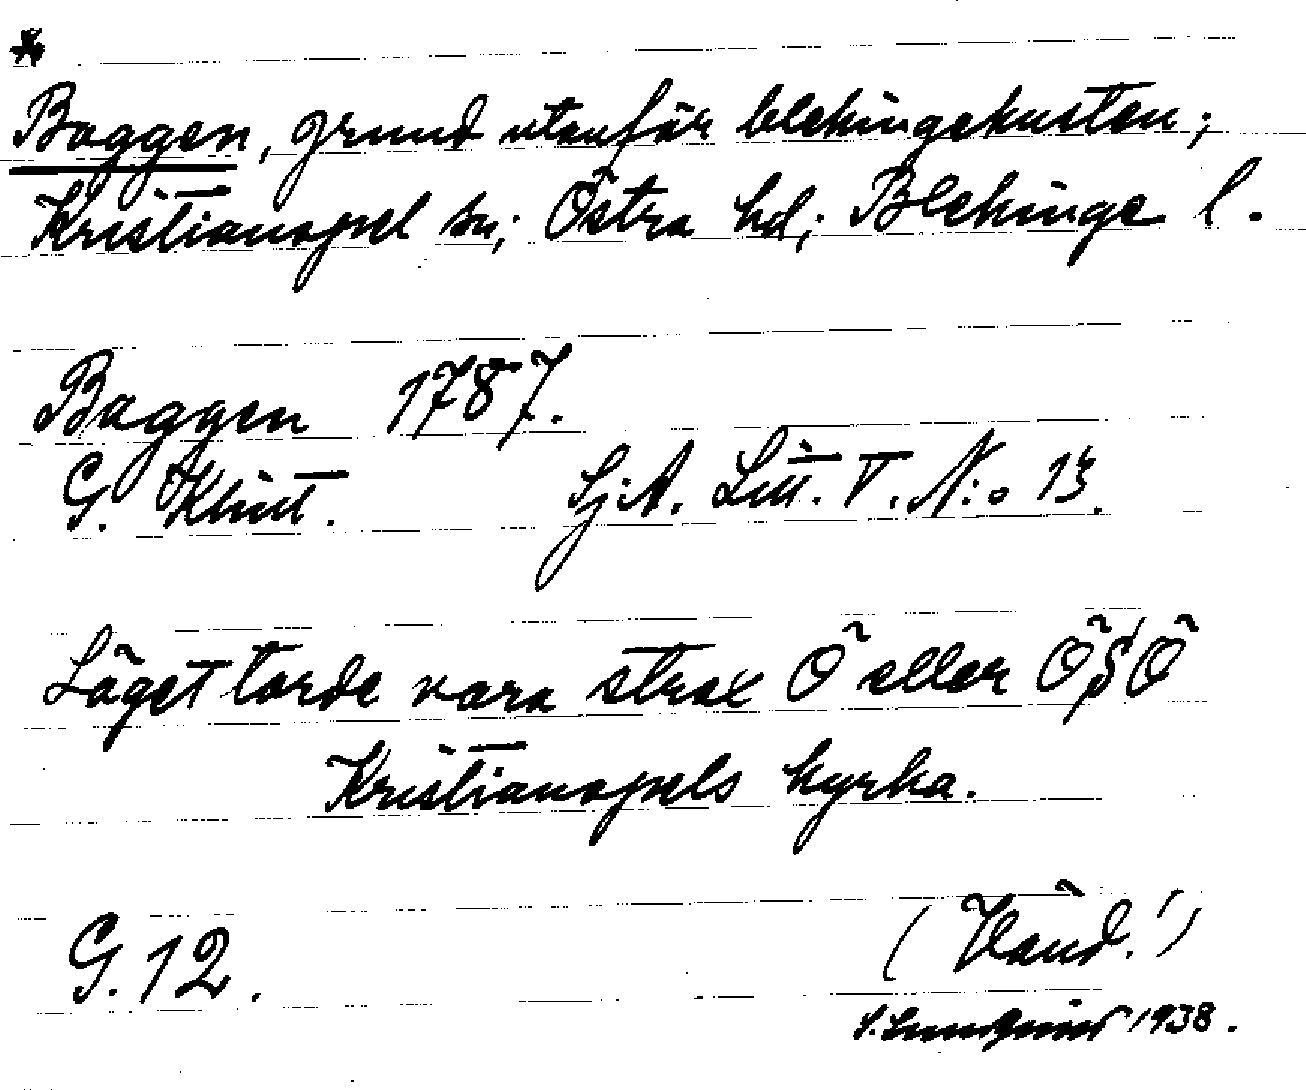 *
Baggen, grund utanför blekingekusten;
Kristianopel sn; Östra hd; Blekinge l.
Baggen 1787.
G. Klint. Sj.A. Litt. V. N:o 13.
Läget torde vara strax Ö eller ÖSÖ
Kristianopels kyrka.
G. 12.
S. Lundqvist 1938.